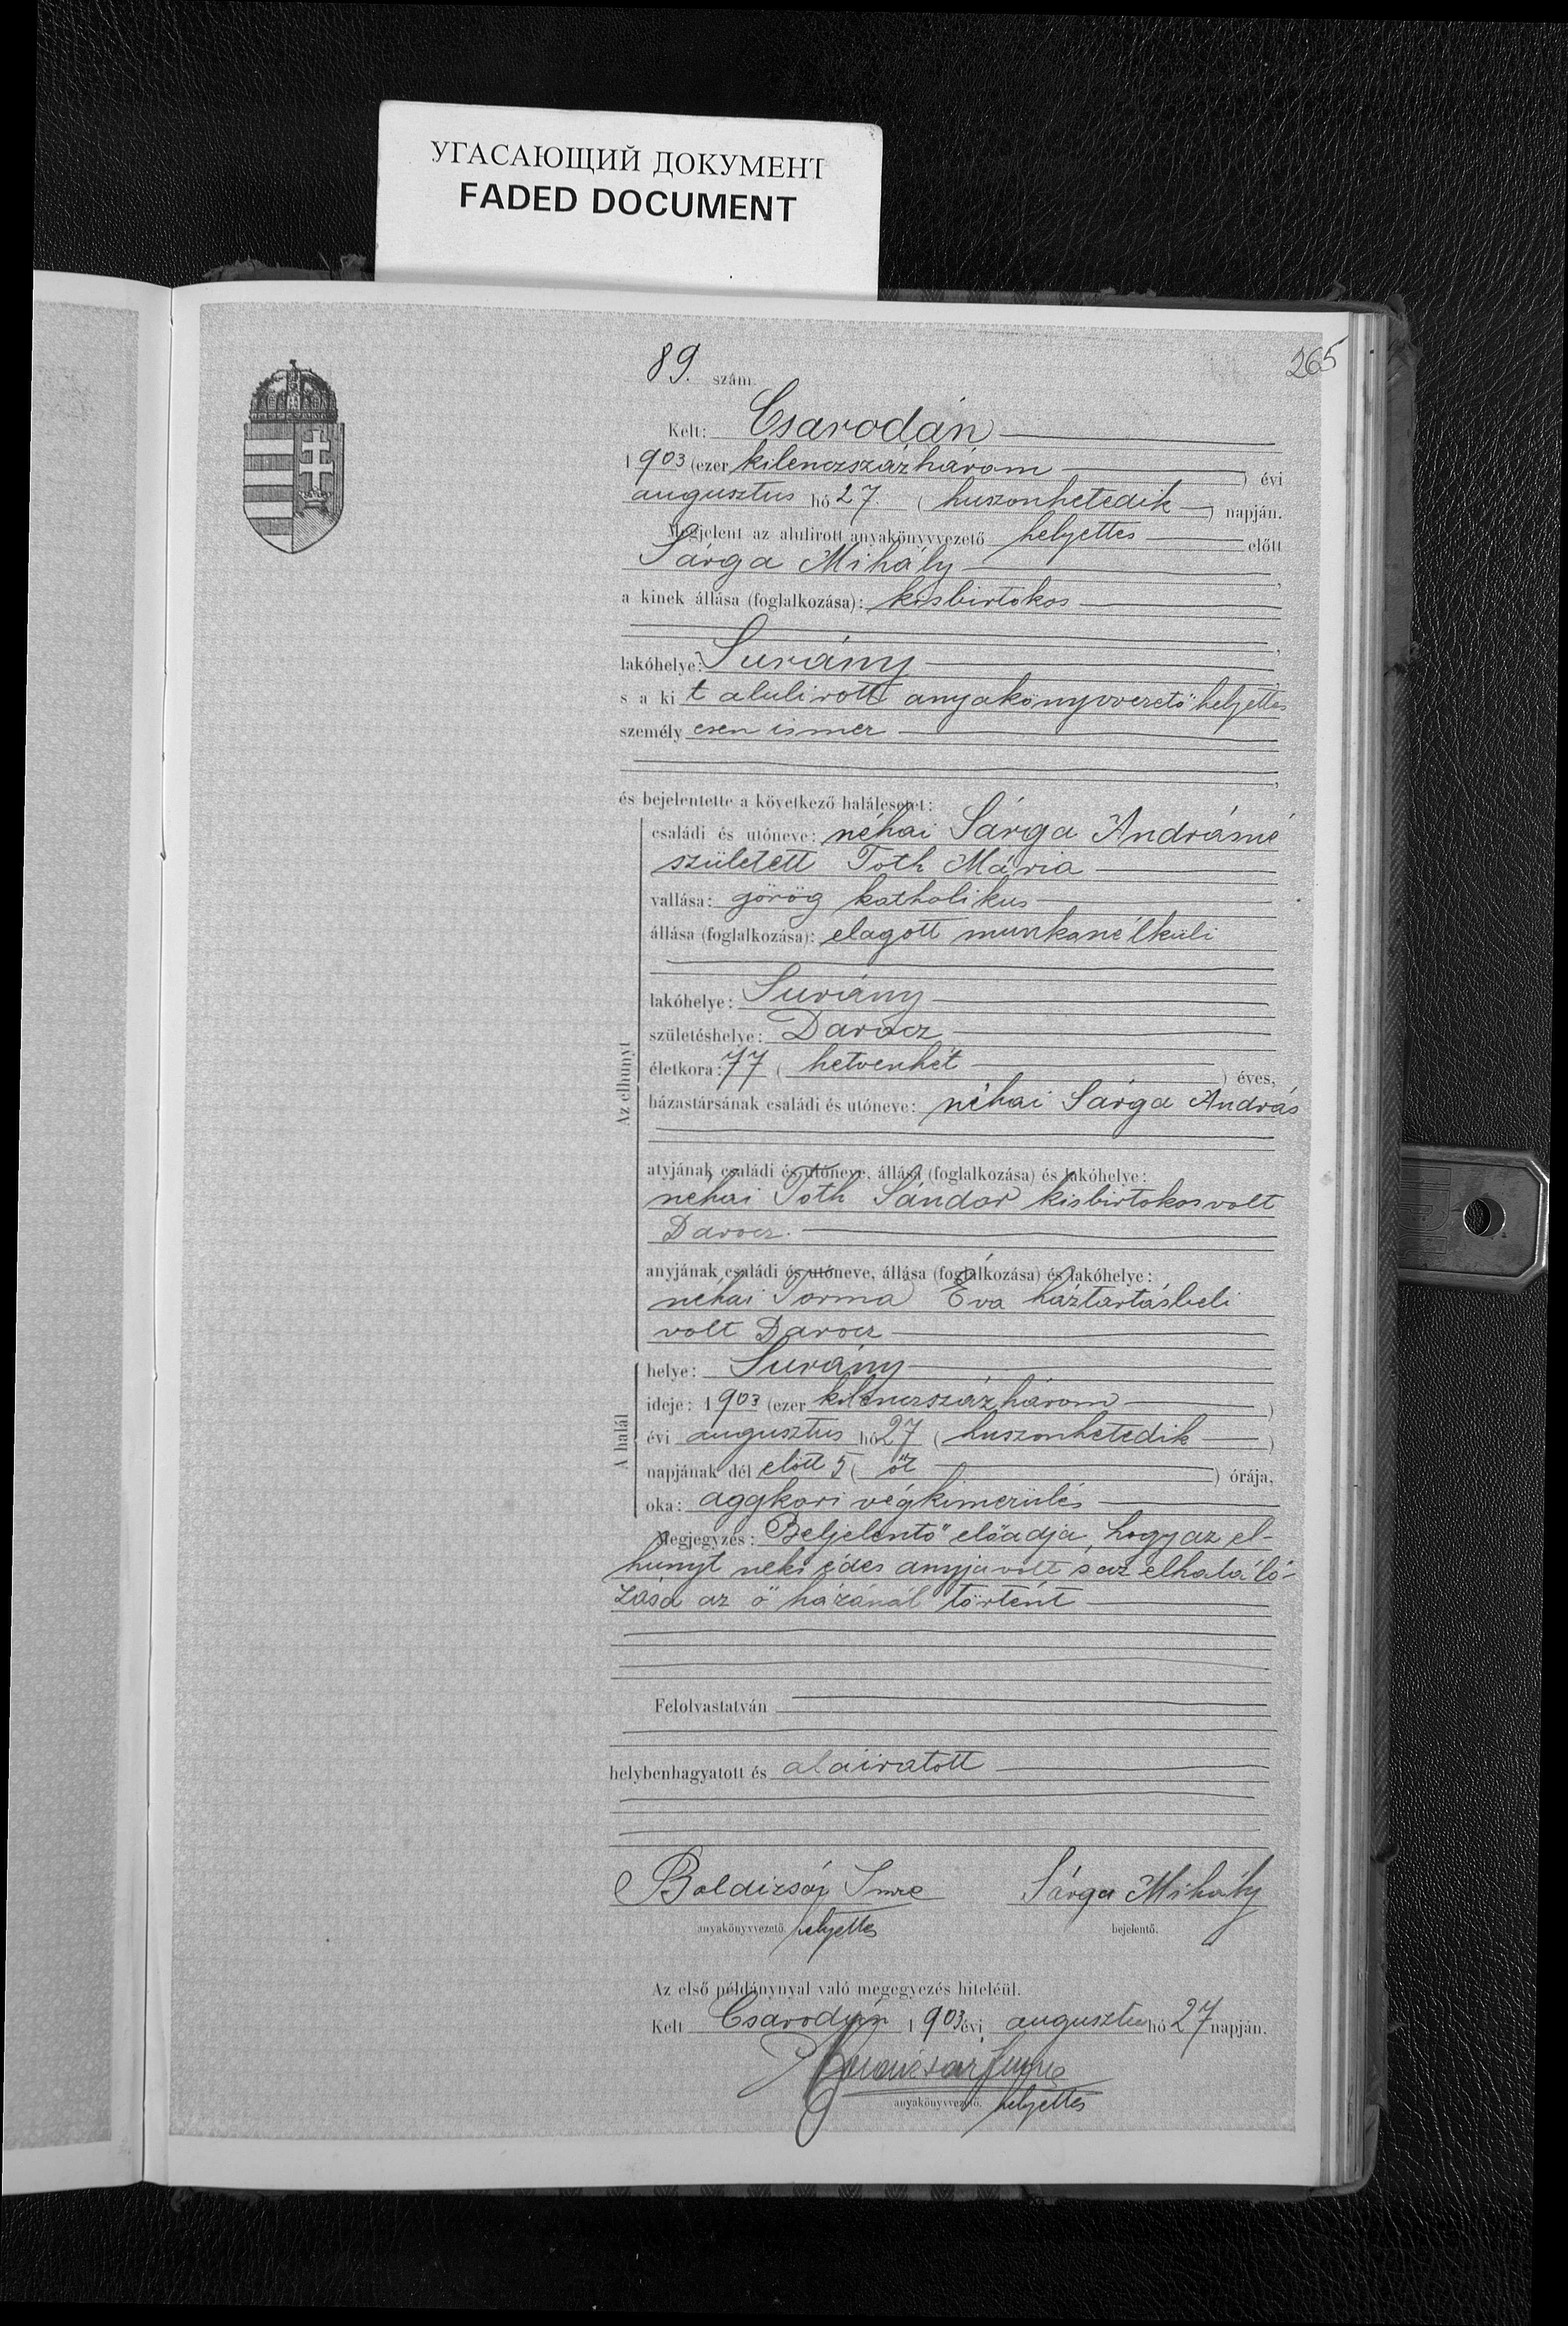 УГАСАЮЩИЙ ДОКУМЕНТ
FADED DOCUMENT
265
89. szám.
Kelt: Csarodán
1903 (ezer kilenczszázhárom) évi
augusztus hó 27. (huszonhetedik) napján.
Megjelent az alulirott anyakönyvvezető helyettes előtt
Sárga Mihály,
a kinek állása (foglalkozása): kisbirtokos
,
lakóhelye: Surány,
s a ki t alulirott anyakönyvvezető helyettes
személy esen ismer
,
és bejelentette a következő halálesetet:
Az elhunyt
családi és utóneve: néhai Sárga Andrásné
született Toth Mária
vallása: görög katholikus
állása (foglalkozása): elagott munkanélküli
lakóhelye: Surány
születéshelye: Darócz
életkora: 77 (hetvenhét) éves,
házastársának családi és utóneve: néhai Sárga András
atyjának családi és utóneve, állása (foglalkozása) és lakóhelye:
néhai Toth Sándor kisbirtokos volt
Darocz.
anyjának családi és utóneve, állása (foglalkozása) és lakóhelye:
néhai Torma Éva háztartásbeli
volt Darocz
A halál
helye: Surány
ideje: 1903 (ezer kilenczszázhárom)
évi augusztus hó 27 (huszonhetedik)
napjának dél előtt 5 (öt) órája,
oka: aggkori végkimerülés
Megjegyzés: Beljelentő előadja, hogy az el-
hunyt neki édes anyja volt s az elhaláló-
zása az ő házánál történt
Felolvastatván
helybenhagyatott és aláiratott
Boldizsár Imre Sárga Mihály
anyakönyvvezető. helyettes bejelentő.
Az első példánynyal való megegyezés hiteléül.
Kelt Csarodán 1903 évi augusztus hó 27 napján.
Boldizsár Imre
anyakönyvvezető. helyettes